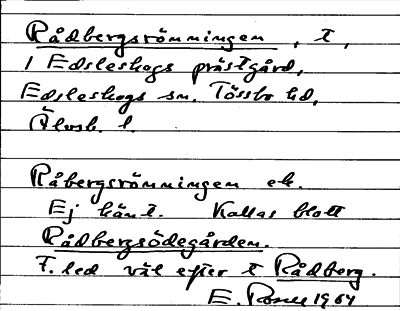 Rådbergsrömningen, t,
i Edsleskogs prästgård,
Edsleskogs sn. Tössbo hd,
Älvsb. l.
Råbergsrömningen ek.
Ej känt. Kallas blott
Rådbergsödegården.
F. led väl efter t Rådberg.
E. 1964